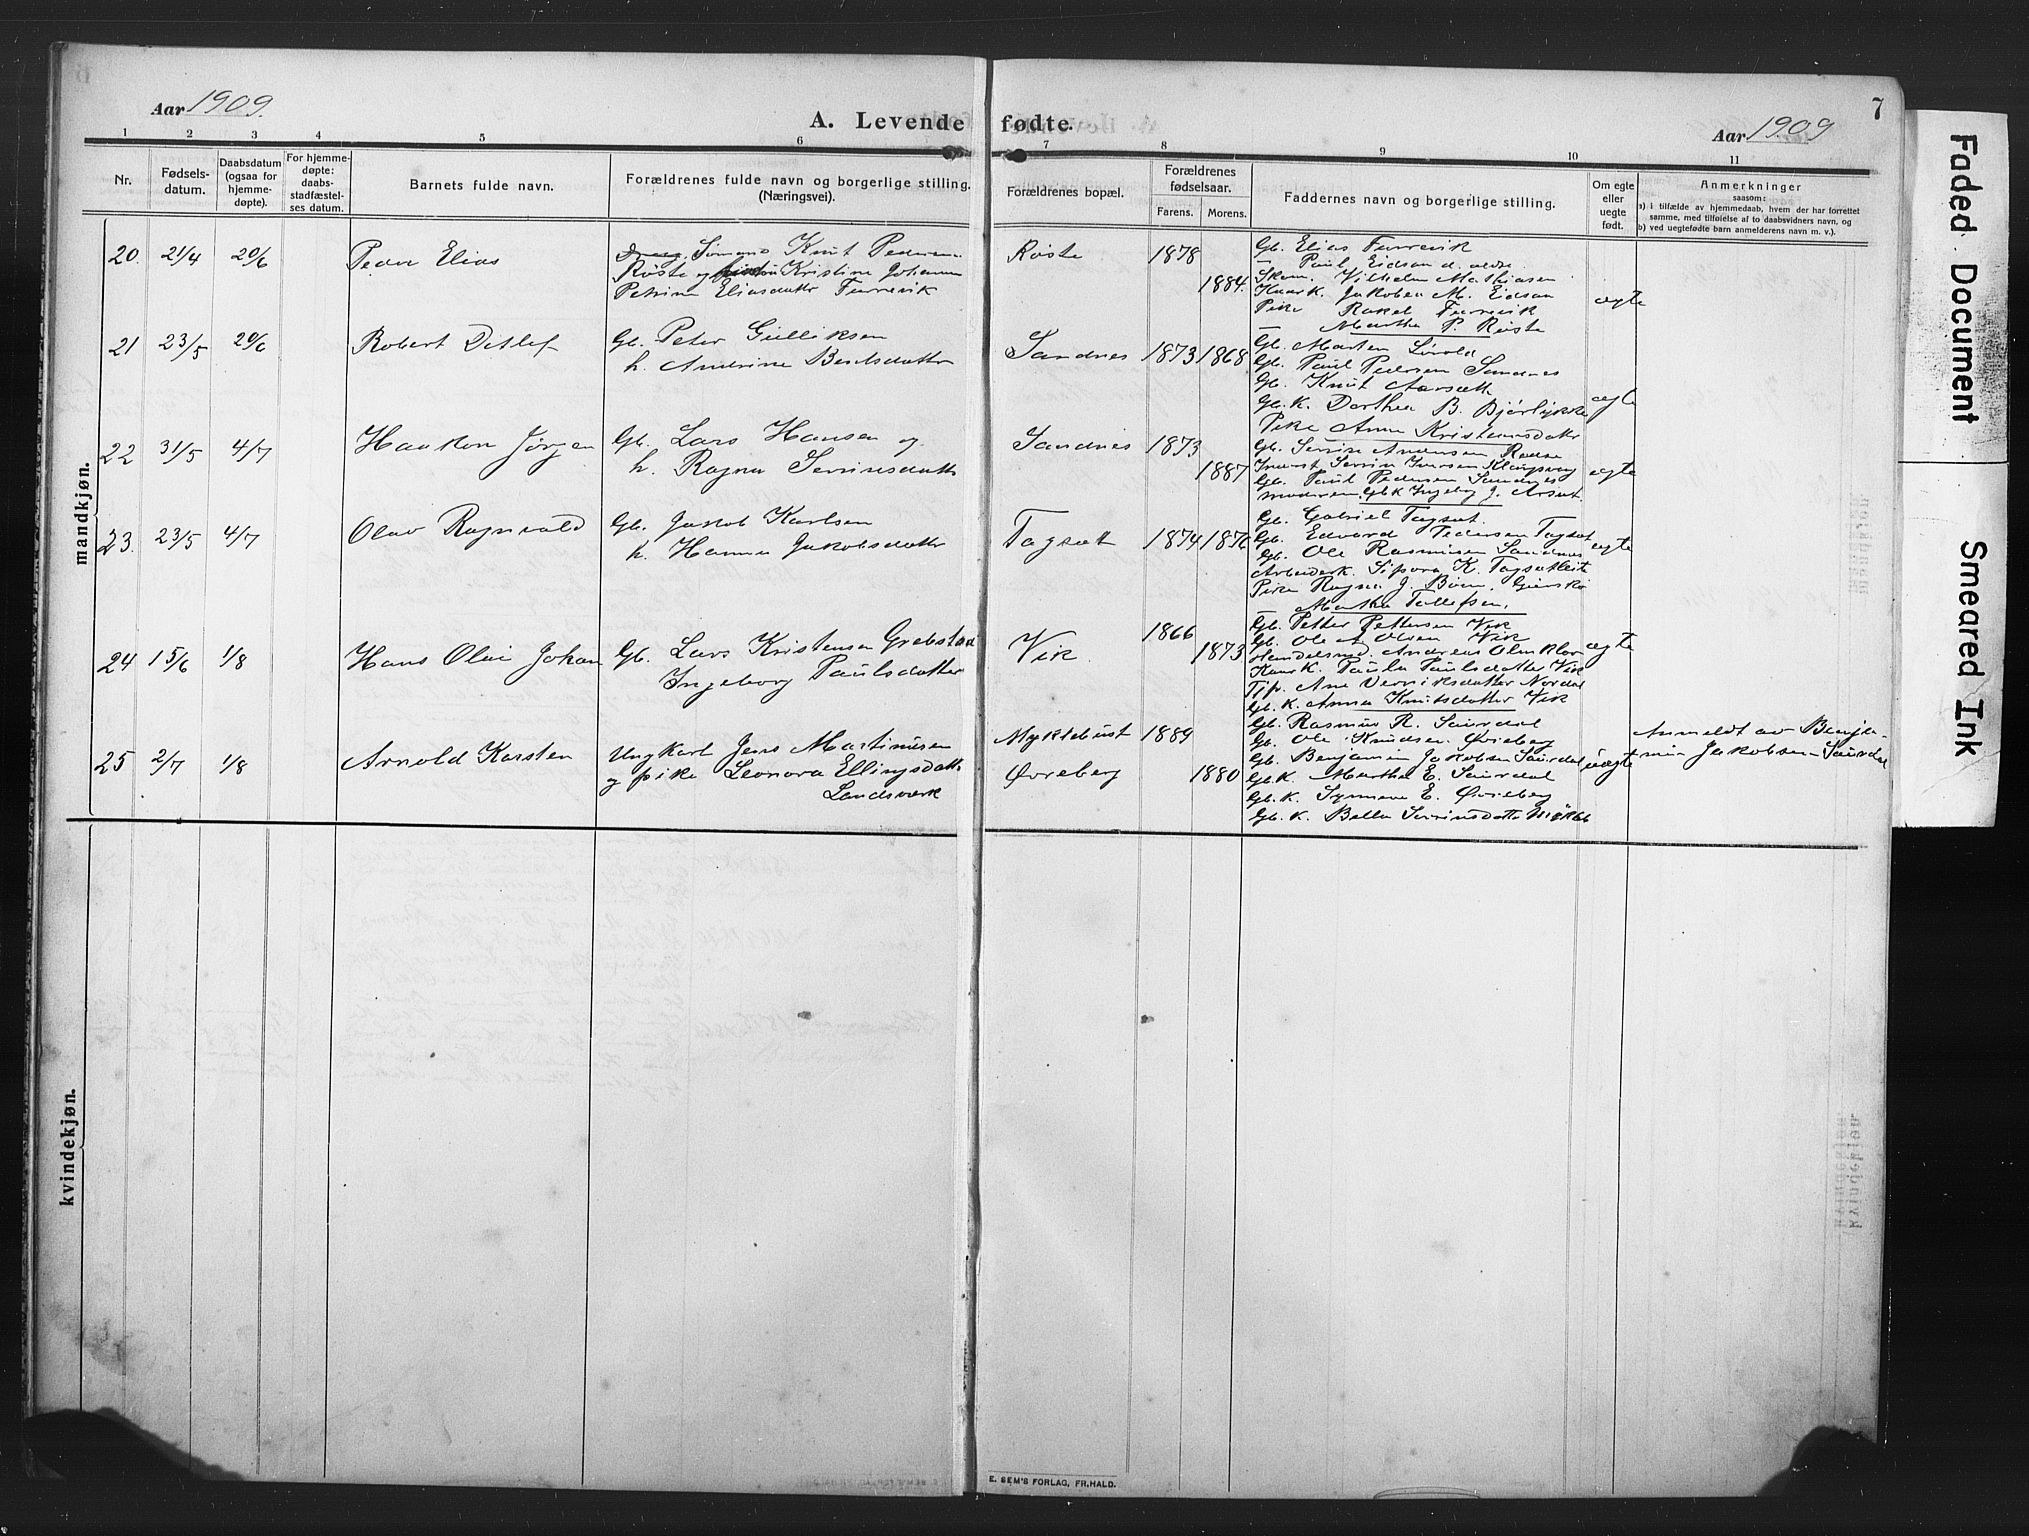 Aar 1909.
A. Levende fødte.
Aar 1909
7
1 2 3 4 5 6 7 8 9 10 11
Nr.
Fødsels-
datum.
Daabsdatum
(ogsaa for
hjemme-
døpte).
For hjemme-
døpte:
daabs-
stadfæstel-
ses datum.
Barnets fulde navn.
Forældrenes fulde navn og borgerlige stilling.
(Næringsvei).
Forældrenes bopæl.
Forældrenes
fødselsaar.
Farens. Morens.
Faddernes navn og borgerlige stilling.
Om egte
eller
uegte
født.
Anmerkninger
saasom:
a) i tilfælde av hjemmedaab, hvem der har forrettet
samme, med tilføielse af to daabsvidners navn, og
b) ved uegtefødte barn anmelderens navn m. v.).
mandkjøn.
20. 21/4 20/6
Peder Elias
Sømand Knut Pedersen
Røste og Kristine Johanne
Petrine Eliasdattr Furrevik
Røste
1878
1884.
Gb. Elias Furrevik
— Paul Eidsan d. ældre
Vilhelm Mathiasen
Kaark. Jakobea M. Eidsan
Pike Rakel Furrevik
— Marthe P. Røiste
egte
21 23/5 20/6
Robert Detlef
Gb. Peter Gulliksen
h. Andrine Bentsdattr
Sandnes
1873 1868
Gb. Marten
Gb. Paul Pedersen Sandnes
Gb. Knut Aarsæth
Gb. K. Dorthea B. Bjørlykke
Pike Anne Kristensdattr
egte
22 31/5 4/7
Haakon Jørgen
Gb. Lars Hansen og
h. Ragna Severinesdattr
Sandnes
1873
1887
Gb. Severin Andersen
Severin Iversen
Gb. Paul Pedersen Sandnes
moderen, Gbk Ingeborg J. Arset.
egte
23. 23/5 4/7
Olav Ragnvald
Gb. Jakob Karlsen
h. Hanna Jakobsdattr
Tagsæt
1874 1876
Gb. Gabriel Tagsæt.
Gb. Edvard Pedersen Tagsæt
Gb. Ole Rasmusen Sandnes
Arbeiderk. Sipora K.
Pike Ragna J.
— Marthe Tollefsen.
egte
24 15/6 1/8
Hans Olai Johan
Gb. Lars Kristensen Grebstad
Ingeborg Paulsdatter
Vik
1866
1873
Gb. Petter Pettersen Vik
Gb. Ole A. Olsen Vik
Handelsmd. Andreas
Kaark. Paula Paulsdatter Vik
Tjp. Ane Nordal
Gb. K. Anna Knutsdatter Vik
egte
25 2/7 1/8
Arnold Karsten
Ungkarl Jens Martinusen
og pike Leonora Ellingsdattr
Landsverk
Myklebust
Øvreberg
1889
1880
Gb. Rasmus R. Saurdal
Gb. Ole Knudsen Øvreberg
Gb. Benjamin Jakobsen Saurdal
Gb.K. Marthe E. Saurdal
Gb. K. Synneva E. Øvreberg
Gb. K. Bella Severinsdattr
uegte
Anmeldt av Benja-
min Jakobsen Saurdal
kvindekjøn.
E. SEM'S FORLAG, FR.HALD.
Faded Document
Smeared Ink